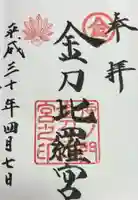 奉拝
金
金刀比羅宮
宮之印
平成三十年四月七日